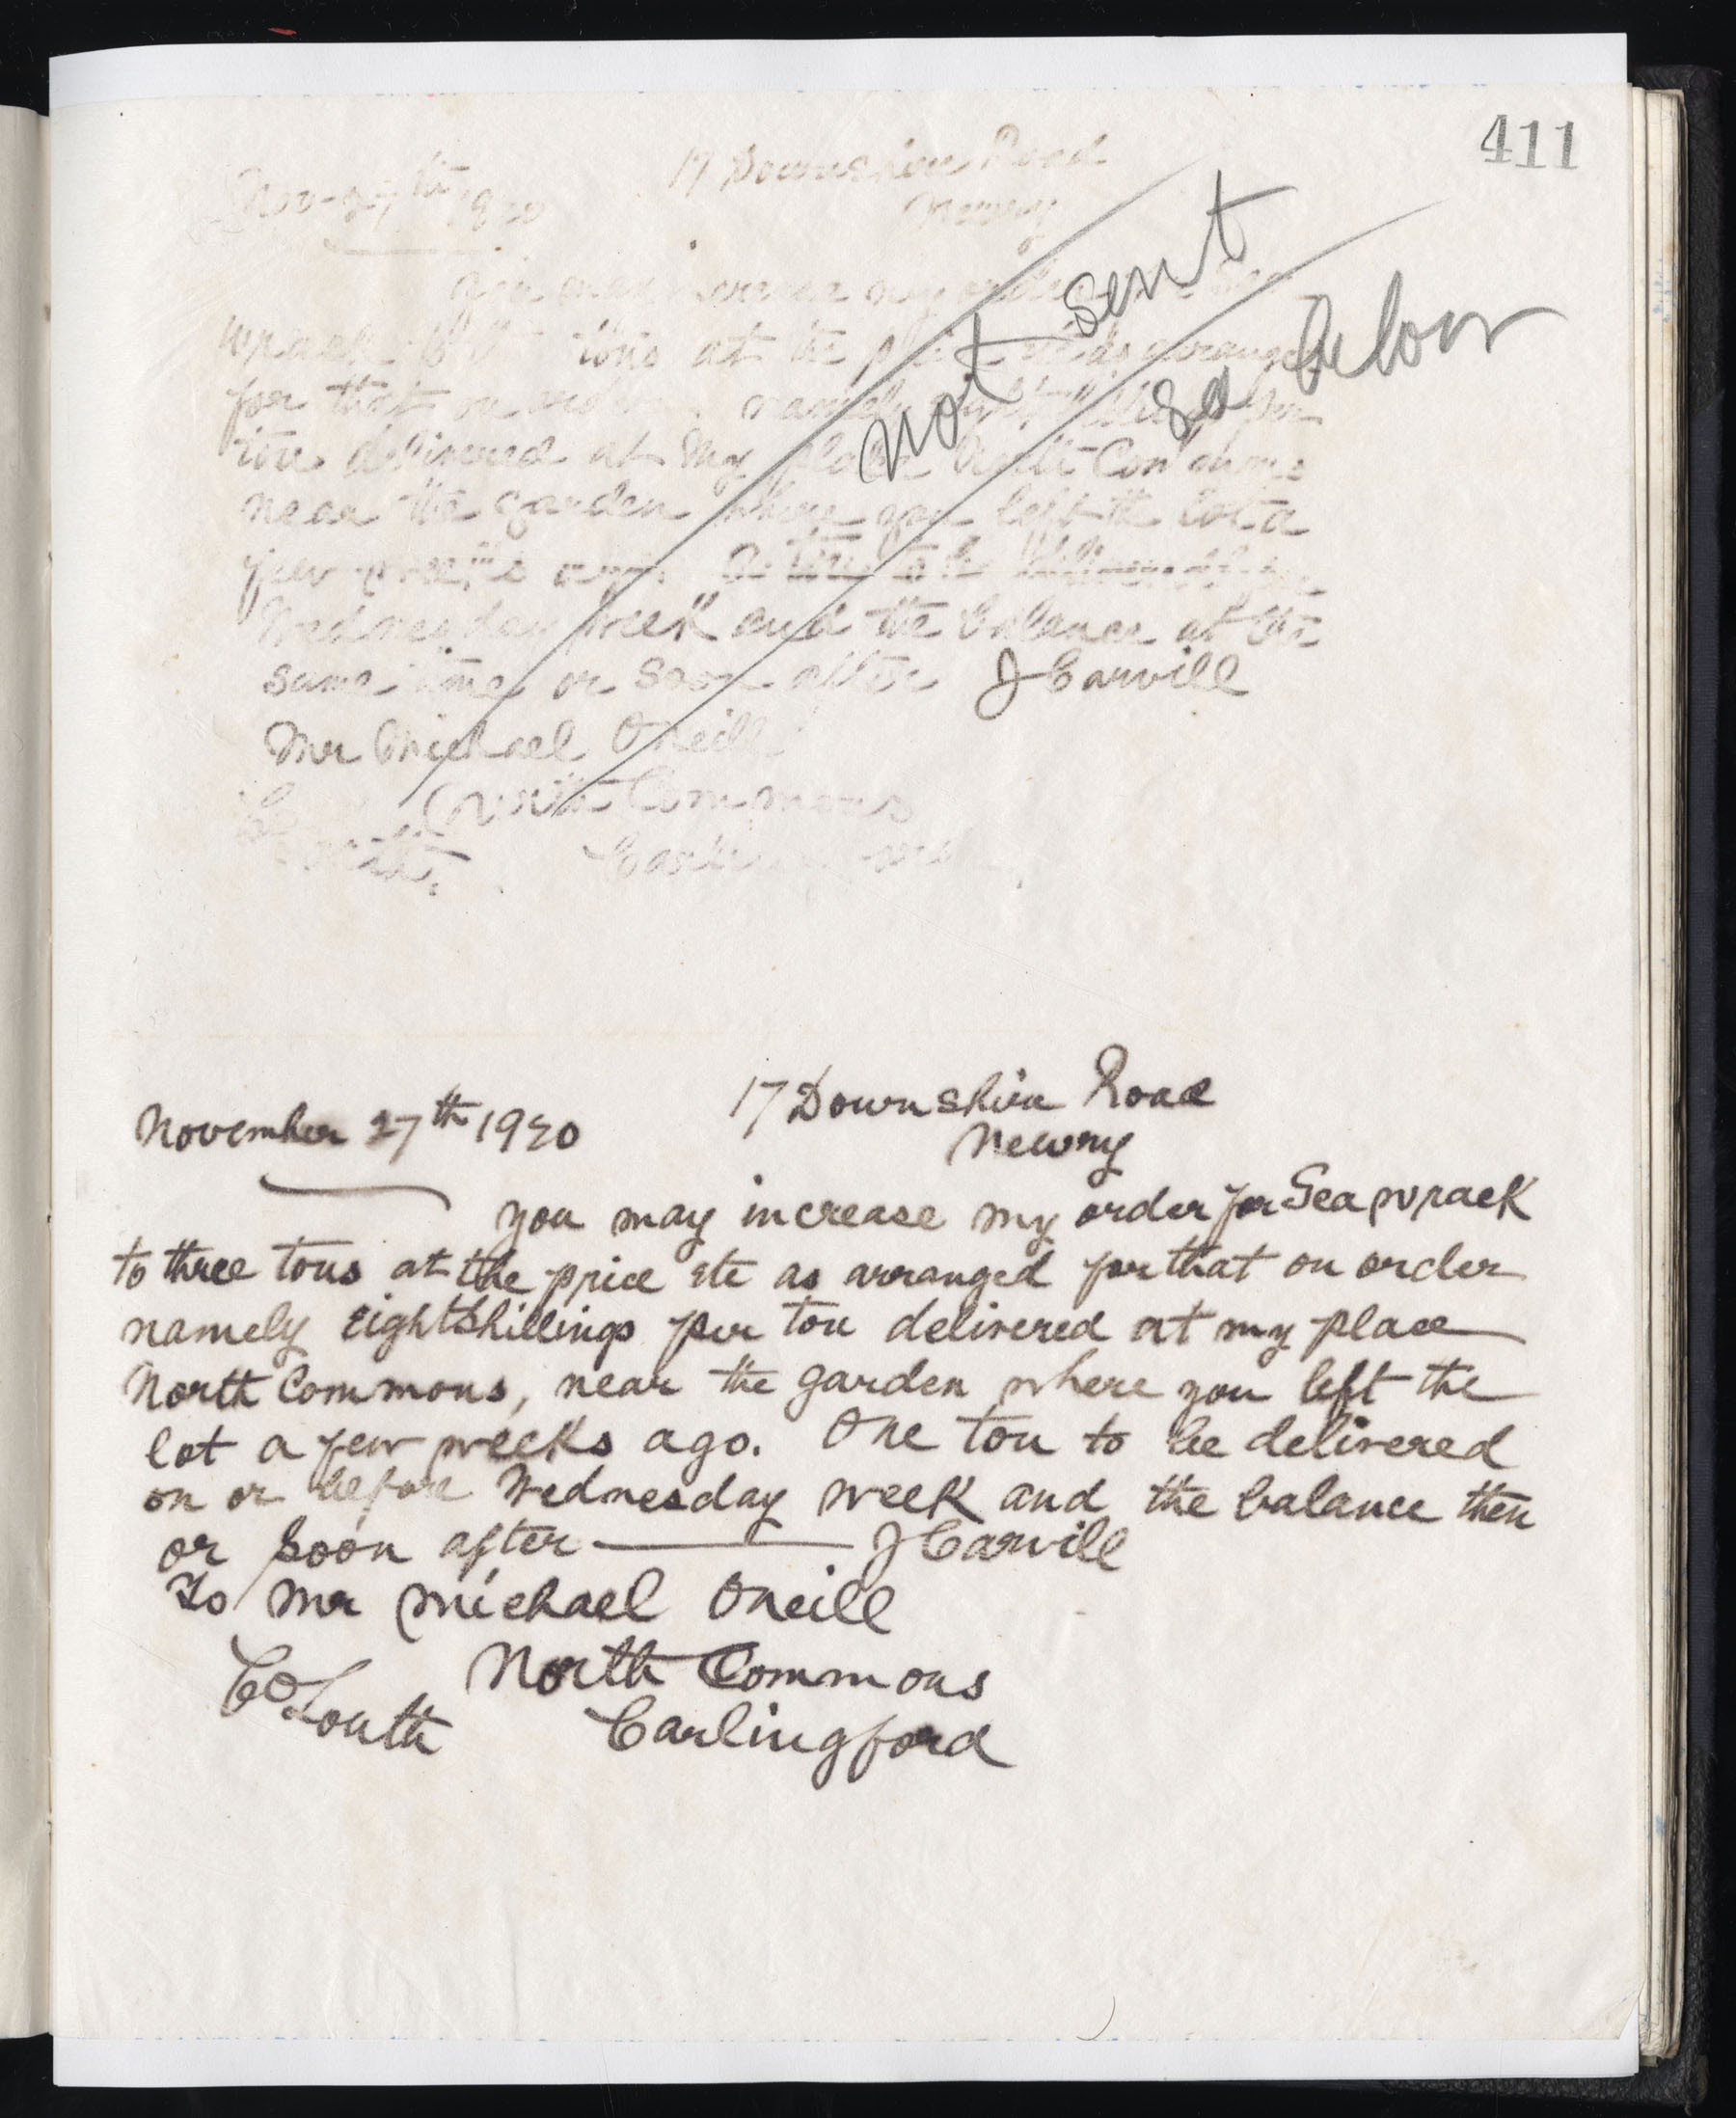 411
17 Downshire Road
Nov 27th 1920
Newry
not sent
See below
You may increase my order
wrack tons at the as arranged
for that on order namely per
ton delivered at my place North Commons
near the garden where you left the lot a
few weeks ago. to be delivered
Wednesday week and the balance at the
same time or soon after J Carvill
Mr Michael ONeill
North Commons
17 Downshire Road
November 27th 1920
Newry
you may increase my order for Sea wrack
to three tons at the price etc as arranged for that on order
namely eight shillings per ton delivered at my place
North Commons, near the garden where you left the
lot a few weeks ago. One ton to be delivered
on or before Wednesday week and the balance then
or soon after — J Carvill
To Mr Michael ONeill
North Commons
Co Louth Carlingford